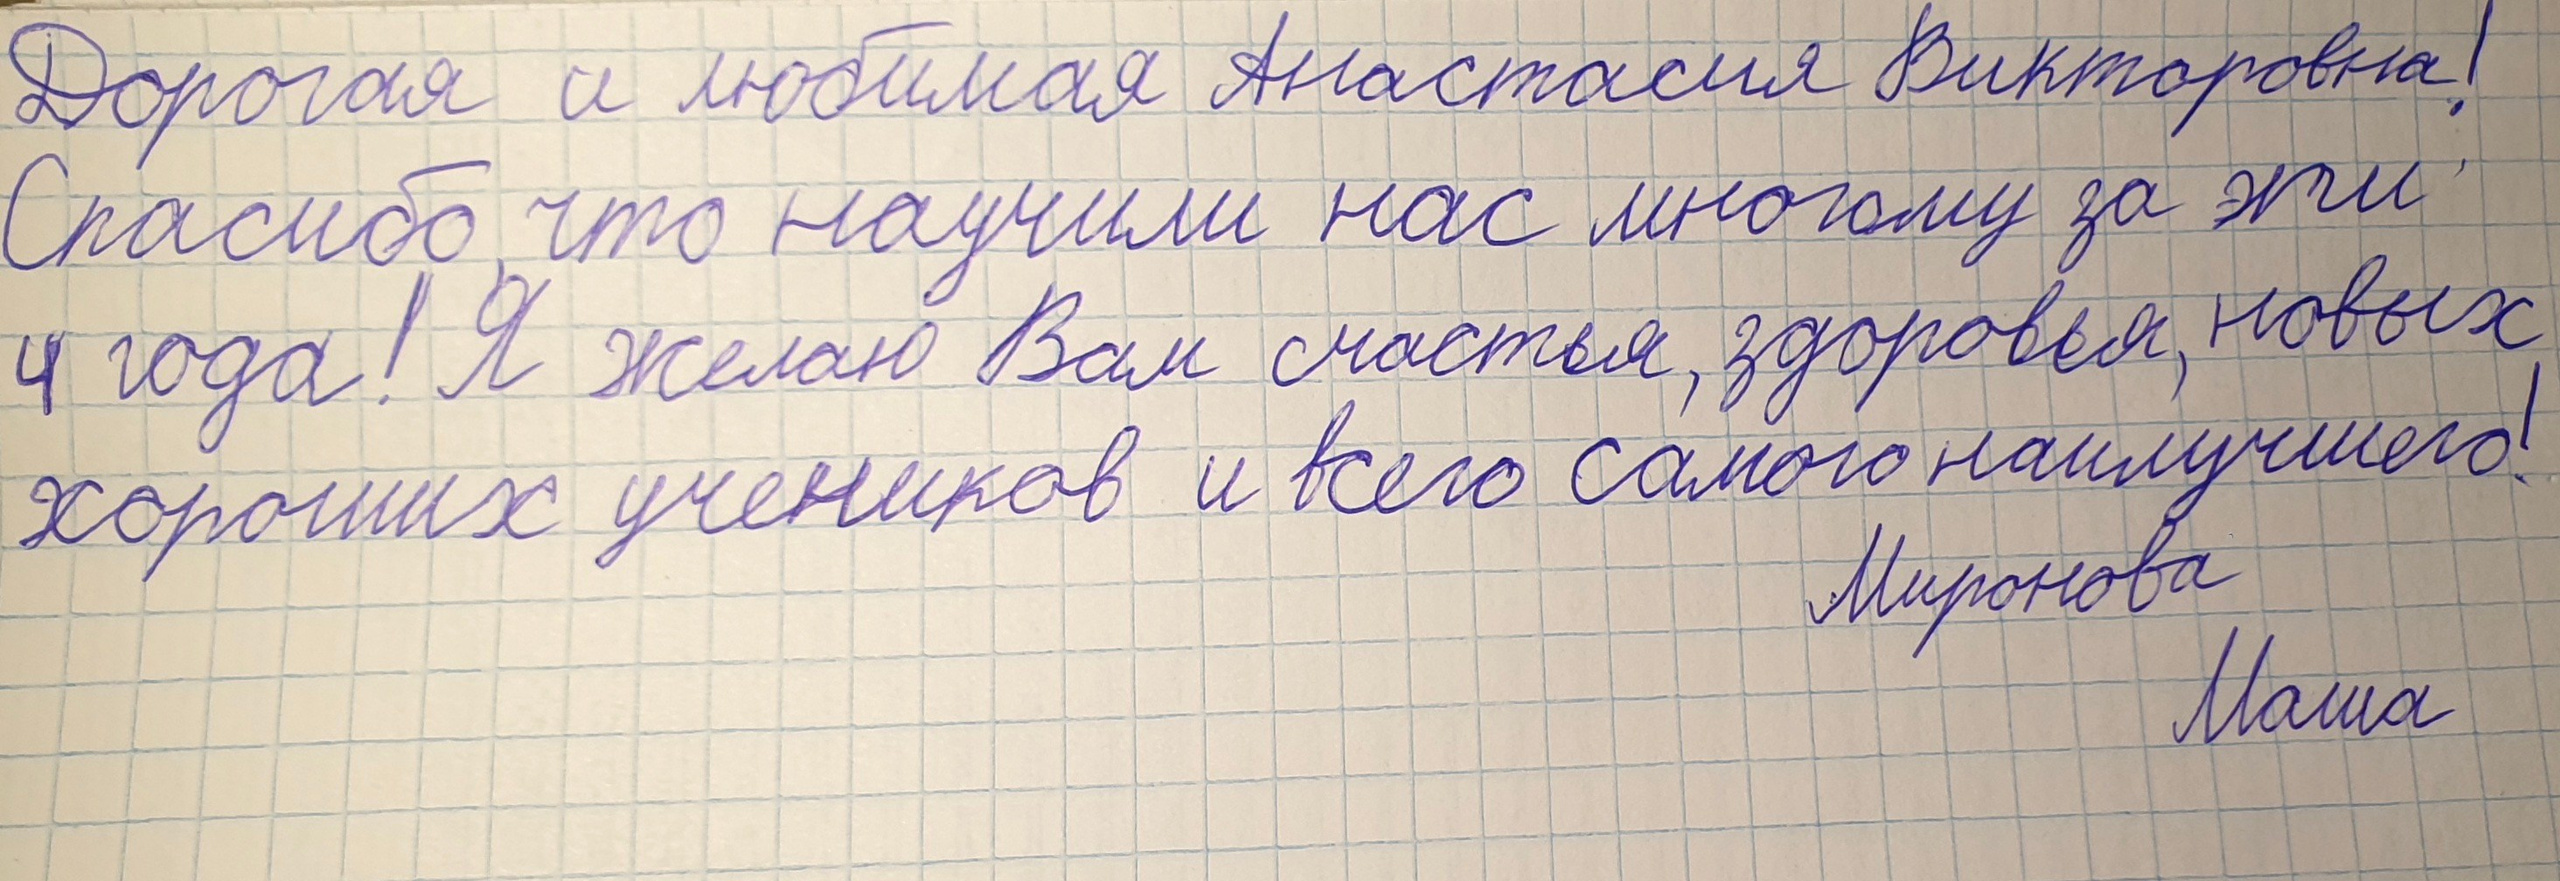 Дорогая и любимая Анастасия Викторовна!
Спасибо, что научили нас многому за эти
4 года! Я желаю Вам счастья, здоровья, новых
хороших учеников и всего самого наилучшего!
Миронова
Маша